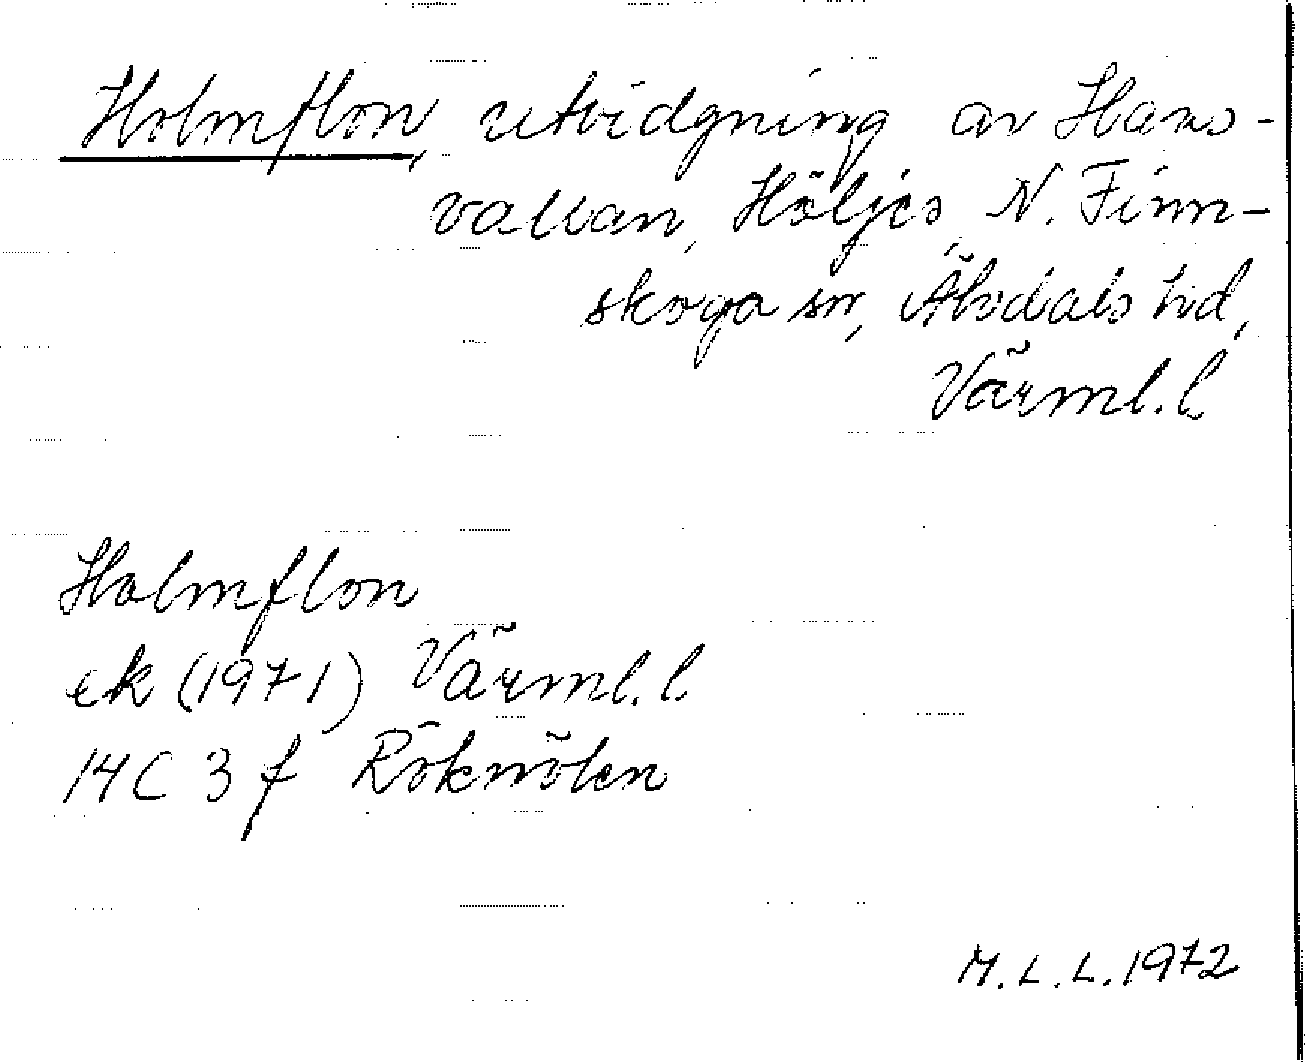 Holmflon, utvidgning av Hans-
vallan, Höljes, N. Finn-
skoga sn, Älvdals hd,
Värml. l
Holmflon
ek (1971) Värml. l.
14C 3f Röknölen
M.L.L. 1972